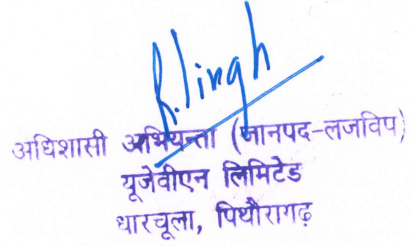 R.Singh
अधिशासी अभियन्ता (जानपद-लजविप)
यूजेवीएन लिमिटेड
धारचूला, पिथौरागढ़